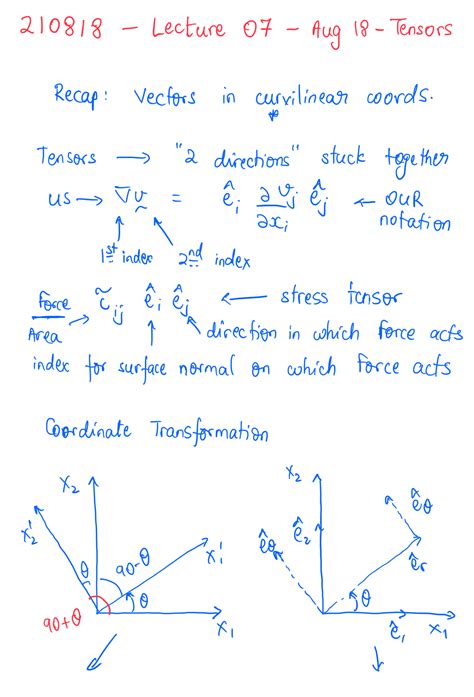 210818 - Lecture 07 - Aug 18 - Tensors
Recap: Vectors in curvilinear coords.
Tensors → "2 directions" stuck together
us → ∇v = ê_i ∂v_j/∂x_i ê_j ← OUR notation
1st index 2nd index
Force/Area → τ̃_ij ê_i ê_j ← stress tensor
direction in which force acts
index for surface normal on which force acts
Coordinate Transformation
x_2 x_2' x_1' θ 90-θ θ 90+θ x_1
x_2 ê_θ ê_2 ê_θ ê_r θ ê_1 x_1